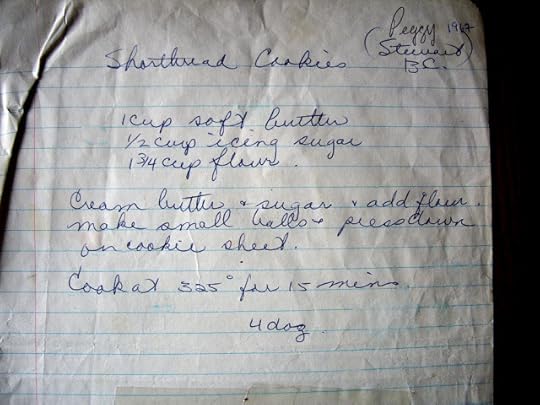 Peggy 1967
(Stewart
B.C.)
Shortbread Cookies
1 cup soft butter
1/2 cup icing sugar
1 3/4 cup flour.
Cream butter & sugar & add flour.
make small balls & press down
on cookie sheet.
Cook at 325° for 15 mins.
4 doz.